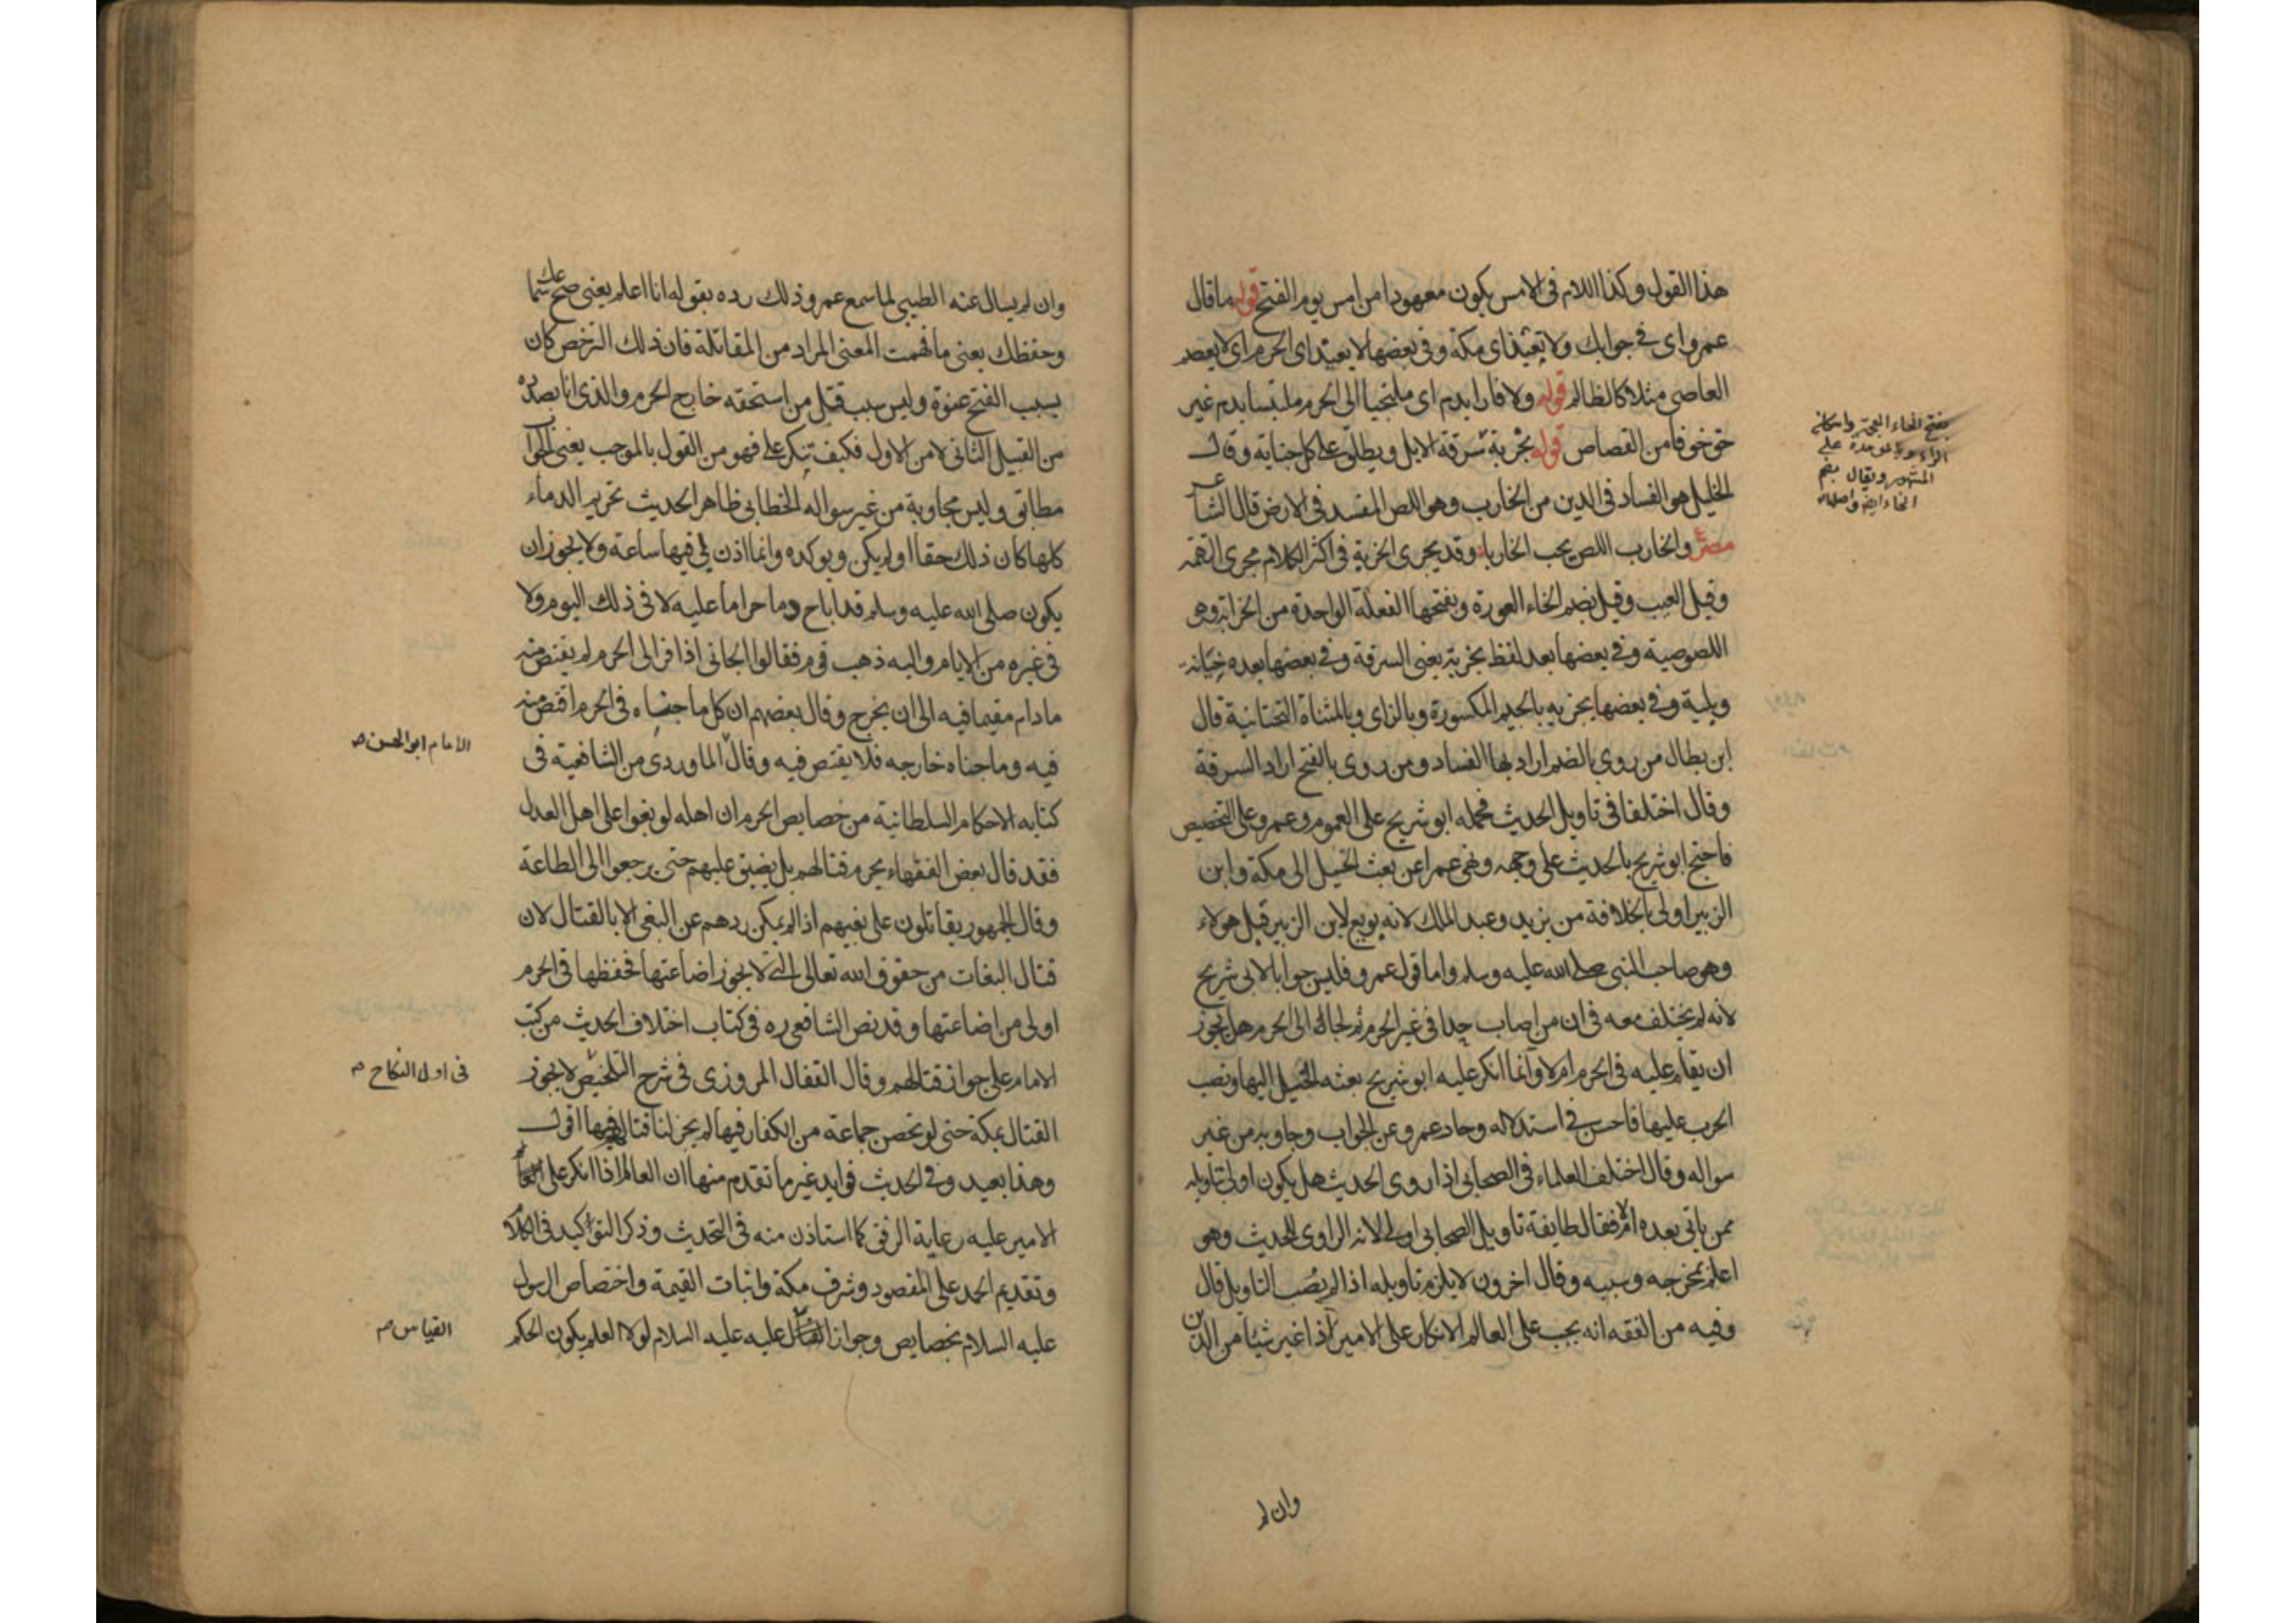 هذا القول وكذا اللام في الامس يكون معهودا من امس يوم الفتح قوله ما قال
عمرو اى في جوابك ولا تعيذ اى مكة وفي بعضها لا يعيذ اى الحرم اى لا يعصم
العاصى مثلا كالظالم قوله ولا فارا بدم اى ملتجيا الى الحرم ملتبسا بدم غير
حق خوفا من القصاص قوله بخربة سرقة الابل ويطلق على كل جناية وقال
الخليل هو الفساد في الدين من الخارب وهو اللص المفسد في الارض قال الشاعر
والخارب اللص يحب الخاربا وقد يجرى الخربة في اكثر الكلام مجرى التهمة
وقيل العيب وقيل بضم الخاء العورة وبفتحها الفعلة الواحدة من الخرابة وهو
اللصوصية وفي بعضها بعد لفظ بخربة يعنى السرقة وفي بعضها بعده خيانة
وبلية وفي بعضها بجزيه بالجيم المكسورة وبالزاى وبالمثناة التحتانية قال
ابن بطال من روى بالضم اراد بها الفساد ومن روى بالفتح اراد السرقة
وقال اختلفا في تاويل الحديث فحمله ابو شريح على العموم وعمرو على التخصيص
فاحتج ابو شريح بالحديث على وجهه ونهى عمرا عن بعث الخيل الى مكة وابن
الزبير اولى بالخلافة من يزيد وعبد الملك لانه بويع لابن الزبير قبل هولاء
وهو صاحب النبي صلى الله عليه وسلم واما قول عمرو فليس جوابا لابى شريح
لانه لم يختلف معه في ان من اصاب حدا في غير الحرم ثم لجا الى الحرم هل يجوز
ان يقام عليه في الحرم ام لا وانما انكر عليه ابو شريح بعثه الخيل اليها ونصب
الحرب عليها فاحسن في استدلاله وحاد عمرو عن الجواب وجاوبه من غير
سواله وقال اختلف العلماء في الصحابى اذا روى الحديث هل يكون اولى بتاويله
ممن ياتى بعده ام لا فقال طايفة تاويل الصحابى اولى لانه الراوى للحديث وهو
اعلم بمخرجه وسببه وقال اخرون لا يلزم تاويله اذا لم يصب التاويل قال
وفيه من الفقه انه يجب على العالم الانكار على الامير اذا غير شيئا من الدين
وان لم
بفتح الخاء المعجمة واسكان
الراء وبالموحدة على
المشهور ويقال بضم
الخاء ايضا واصلها
وان لم يسال عنه الطيبى لما سمع عمرو ذلك رده بقوله انا اعلم يعنى صح سماعك
وحفظك يعنى ما فهمت المعنى المراد من المقاتلة فان ذلك الترخص كان
بسبب الفتح عنوة وليس بسبب قتل من استحقه خارج الحرم والذى انا بصدده
من القبيل الثانى لا من الاول فكيف تنكر على فهو من القول بالموجب يعنى الجواب
مطابق وليس مجاوبة من غير سواله الخطابى ظاهر الحديث تحريم الدماء
كلها كان ذلك حقا او لم يكن ويوكده وانما اذن لى فيها ساعة ولا يجوز ان
يكون صلى الله عليه وسلم قد اباح دما حراما عليه لا في ذلك اليوم ولا
في غيره من الايام واليه ذهب قوم فقالوا الجانى اذا فر الى الحرم لم يقتص منه
ما دام مقيما فيه الى ان يخرج وقال بعضهم ان كل ما جناه في الحرم اقتص منه
فيه وما جناه خارجه فلا يقتص فيه وقال الماوردى من الشافعية في
كتابه الاحكام السلطانية من خصايص الحرم ان اهله لو بغوا على اهل العدل
فقد قال بعض الفقهاء يحرم قتالهم بل يضيق عليهم حتى يرجعوا الى الطاعة
وقال الجمهور يقاتلون على بغيهم اذا لم يمكن ردهم عن البغى الا بالقتال لان
قتال البغات من حقوق الله تعالى التى لا يجوز اضاعتها فحفظها في الحرم
اولى من اضاعتها وقد نص الشافعى ره في كتاب اختلاف الحديث من كتب
الامام على جواز قتالهم وقال القفال المروزى في شرح التلخيص لا يجوز
القتال بمكة حتى لو تحصن جماعة من الكفار فيها لم يجز لنا قتالهم فيها اقول
وهذا بعيد وفي الحديث فوايد غير ما تقدم منها ان العالم اذا انكر على
الامير عليه رعاية الرفق كما استاذن منه في التحديث وذكر التواكيد في الكلام
وتقديم الحمد على المقصود وشرف مكة واثبات القيمة واختصاص الرسول
عليه السلام بخصايص وجواز عليه عليه السلام لولا العلم بكون الحكم
الامام ابو الحسن صح
في اول النكاح صح
القياس صح